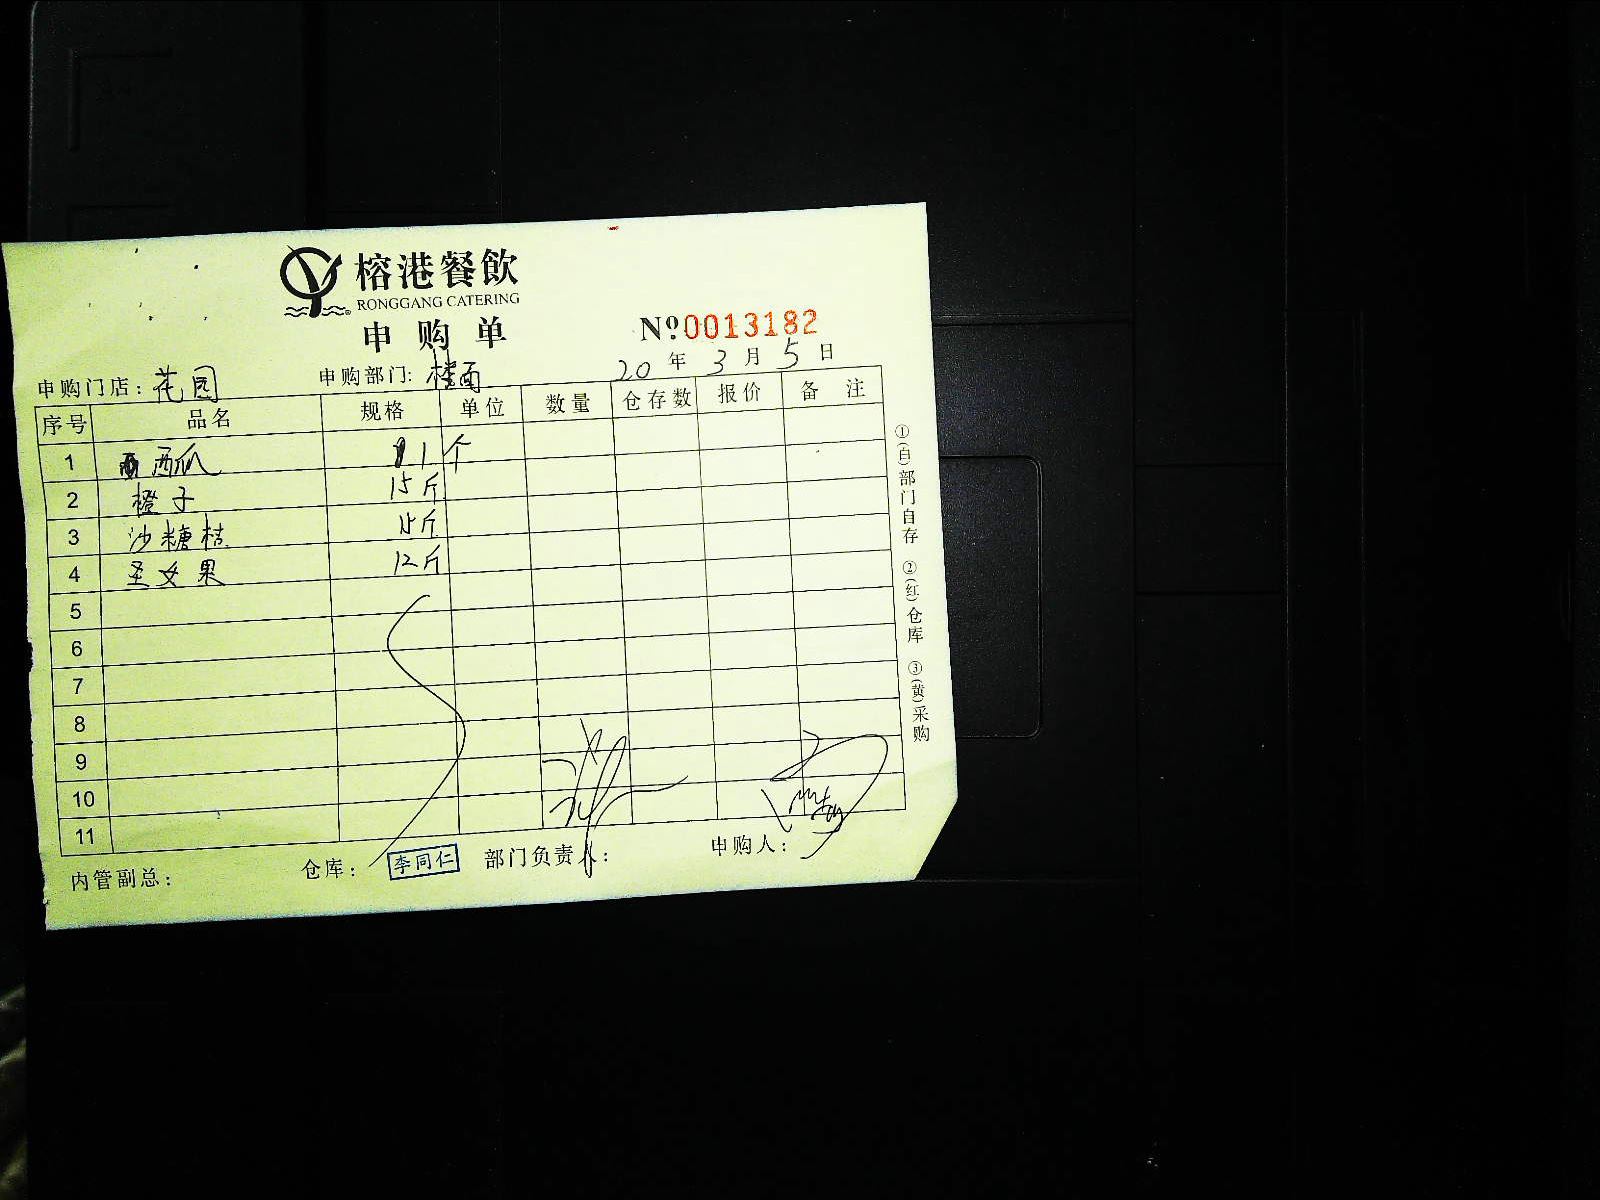 榕港餐飲
RONGGANG CATERING
申购单
№ 0013182
20年3月5日
申购门店：花园 申购部门：楼面
序号 品名 规格 单位 数量 仓存数 报价 备注
1 西瓜 1个
2 橙子 15斤
3 沙糖桔 15斤
4 圣女果 12斤
5
6
7
8
9
10
11
①(白)部门自存 ②(红)仓库 ③(黄)采购
内管副总： 仓库： 李同仁 部门负责人： 申购人：